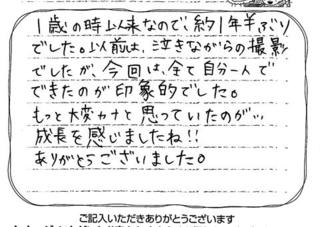 1歳の時以来なので、約1年半ぶり
でした。以前は、泣きながらの撮影
でしたが、今回は、全て自分一人で
できたのが印象的でした。
もっと大変カナと思っていたのが…
成長を感じましたね!!
ありがとうございました。
ご記入いただきありがとうございます